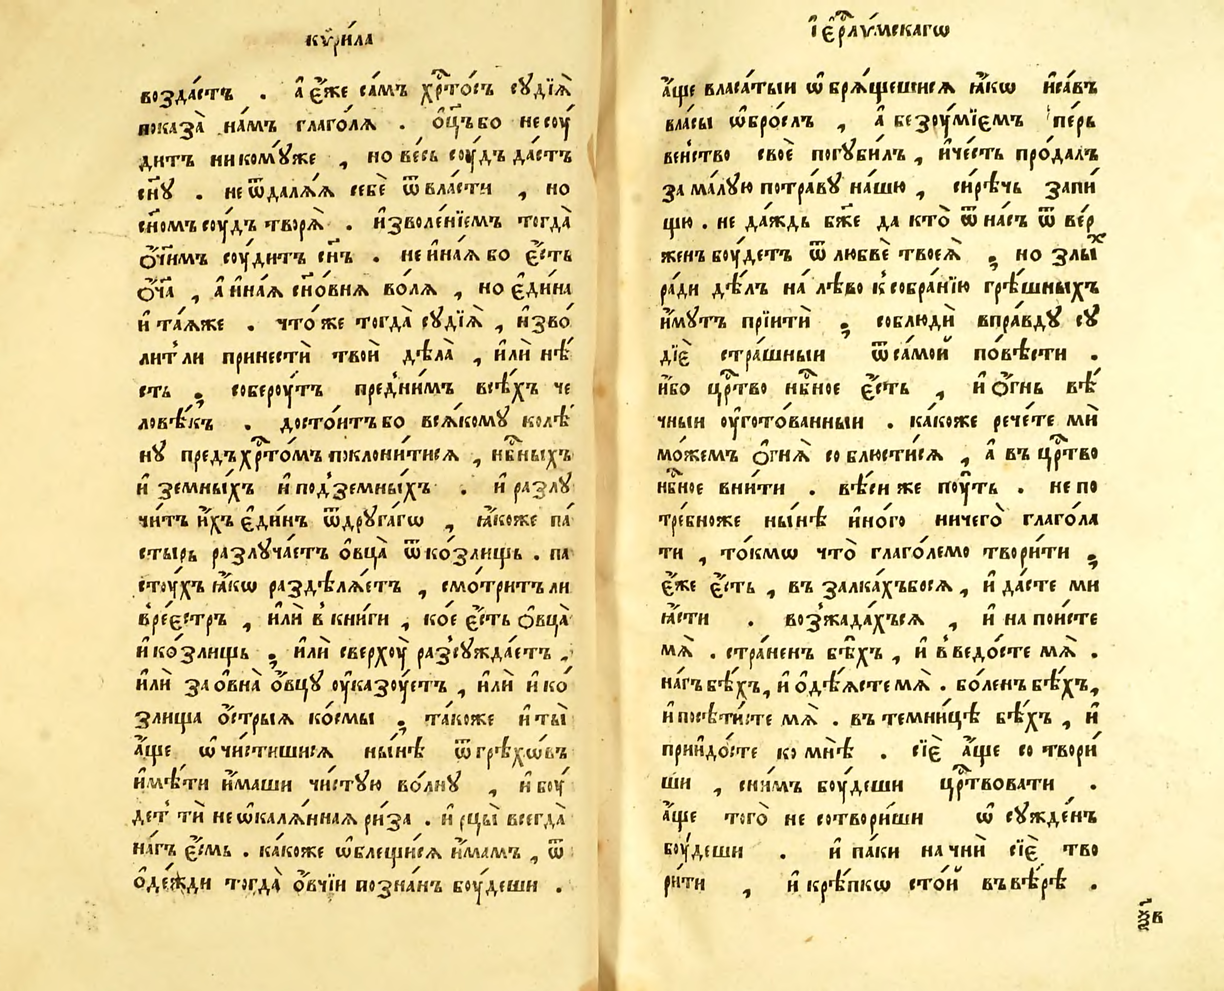 кѷрі́ла
возда́стъ . а҆ є҆́же са́мъ хр҇то́съ сꙋдїѧ̀
показа̀ на́мъ глаго́лѧ . о҆ц҃ъ бо не соу́
дитъ никомꙋ́же , но ве́сь соу́дъ да́стъ
сн҃ꙋ . не ѿдалѧ́ѧ себѐ ѿ вла́сти , но
сн҃омъ соу́дъ творѧ̀ . и҆зволе́нїемъ тогда̀
о҆́ч҃имъ соу́дитъ сн҃ъ . не и҆на́ѧ бо є҆́сть
о҆́ч҃а , а҆ и҆на́ѧ сн҃о́внѧ во́лѧ , но є҆ди́на
и҆ та́ѧже . что́ же тогда̀ сꙋдїѧ̀ , и҆зво́
литъ ли принестѝ твоѝ дѣ́ла , и҆лѝ нѣ́
сть ; собероу́тъ пред̾ни́мъ всѣ́хъ че
ловѣ́къ . досто́итъ бо всѧ́комꙋ колѣ́
нꙋ предъ хр҇то́мъ поклони́тисѧ , нб҃ныхъ
и҆ земны́хъ и҆ под̾земны́хъ . и҆ разлꙋ
чи́тъ и҆́хъ є҆ди́нъ ѿ дрꙋга́гѡ , ꙗ҆́коже па́
стырь разлꙋча́етъ о҆вца̀ ѿ ко́злищь . па
стоу́хъ ꙗ҆́кѡ раздѣлѧ́етъ , смо́тритъ ли
в̾рее́стръ , и҆лѝ в̾ кни́ги , ко́е є҆́сть о҆вца̀
и҆ ко́злищь ; и҆лѝ сверхоу̀ раз̾сꙋжда́етъ ,
и҆лѝ за о҆вна̀ о҆́вцꙋ оу҆казоу́етъ , и҆лѝ и҆ ко́
злища о҆́стрыѧ ко́смы ; та́коже и҆ ты̀
а҆́ще ѡ҆чи́стишисѧ ны́нѣ ѿ грѣхѡ́въ
и҆мѣ́ти и҆́маши чи́стꙋю во́лнꙋ , и҆ боу́
детъ тѝ не ѡ҆калѧ́нная ри́за . и҆ рцы̀ всегда̀
на́гъ є҆́смь . ка́коже ѡ҆блещи́сѧ и҆́мамъ , ѿ
о҆де́жди тогда̀ о҆́вчїи позна́нъ боу́деши .
і҆ер҇лѵ́мскагѡ
а҆́ще власа́тыи ѡ҆брѧ́щешисѧ ꙗ҆́кѡ и҆са́въ
вла́сы ѡ҆бро́слъ , а҆ безоу́мїемъ пе́рь
венство своѐ погꙋби́лъ , и҆ че́сть про́далъ
за ма́лꙋю потра́вꙋ на́шю , си́рѣчь запи́
щю . не да́ждь бж҃е да кто̀ ѿ на́съ ѿ ве́р
женъ боу́детъ ѿ любвѐ твоеѧ̀ ; но злы́х
ра́ди дѣ́лъ на лѣ́во к̾ собра́нїю грѣ́шныхъ
и҆́мꙋтъ прїитѝ ; соблюдѝ впра́вдꙋ сꙋ
дїѐ стра́шныи ѿ са́мой по́вѣсти .
и҆́бо цр҇тво нб҃ное є҆́сть , и҆ о҆́гнь вѣ́
чныи оу҆гото́ванныи . ка́коже рече́те мѝ
мо́жемъ о҆гнѧ̀ со блю́стисѧ , а҆ въ цр҇тво
нб҃ное вни́ти . вѣ́си же поу́ть . не по
тре́бноже ны́нѣ и҆но́го ничего̀ глагола
ти , то́кмѡ что̀ глаго́лемо твори́ти ;
є҆́же є҆́сть , въ залка́хъ босѧ , и҆ да́сте ми
ꙗ҆́сти . воз̾жада́хъсѧ , и҆ на пои́сте
мѧ̀ . стра́ненъ бѣ́хъ , и҆ в̾ ведо́сте мѧ̀ .
на́гъ бѣ́хъ, и҆ о҆дѣ́ѧсте мѧ̀ . бо́ленъ бѣ́хъ,
и҆ посѣти́сте мѧ̀ . въ темни́цѣ бѣ́хъ , и҆
приидо́сте ко мнѣ̀ . сїѐ а҆́ще со твори́
ши , сни́мъ боу́деши цр҇твовати .
а҆́ще того̀ не сотвори́ши ѡ҆ сꙋжде́нъ
боу́деши . и҆ па́ки начнѝ сїѐ тво
ри́ти , и҆ крѣ́пкѡ сто́й въ вѣ́рѣ .
ѯ҃в